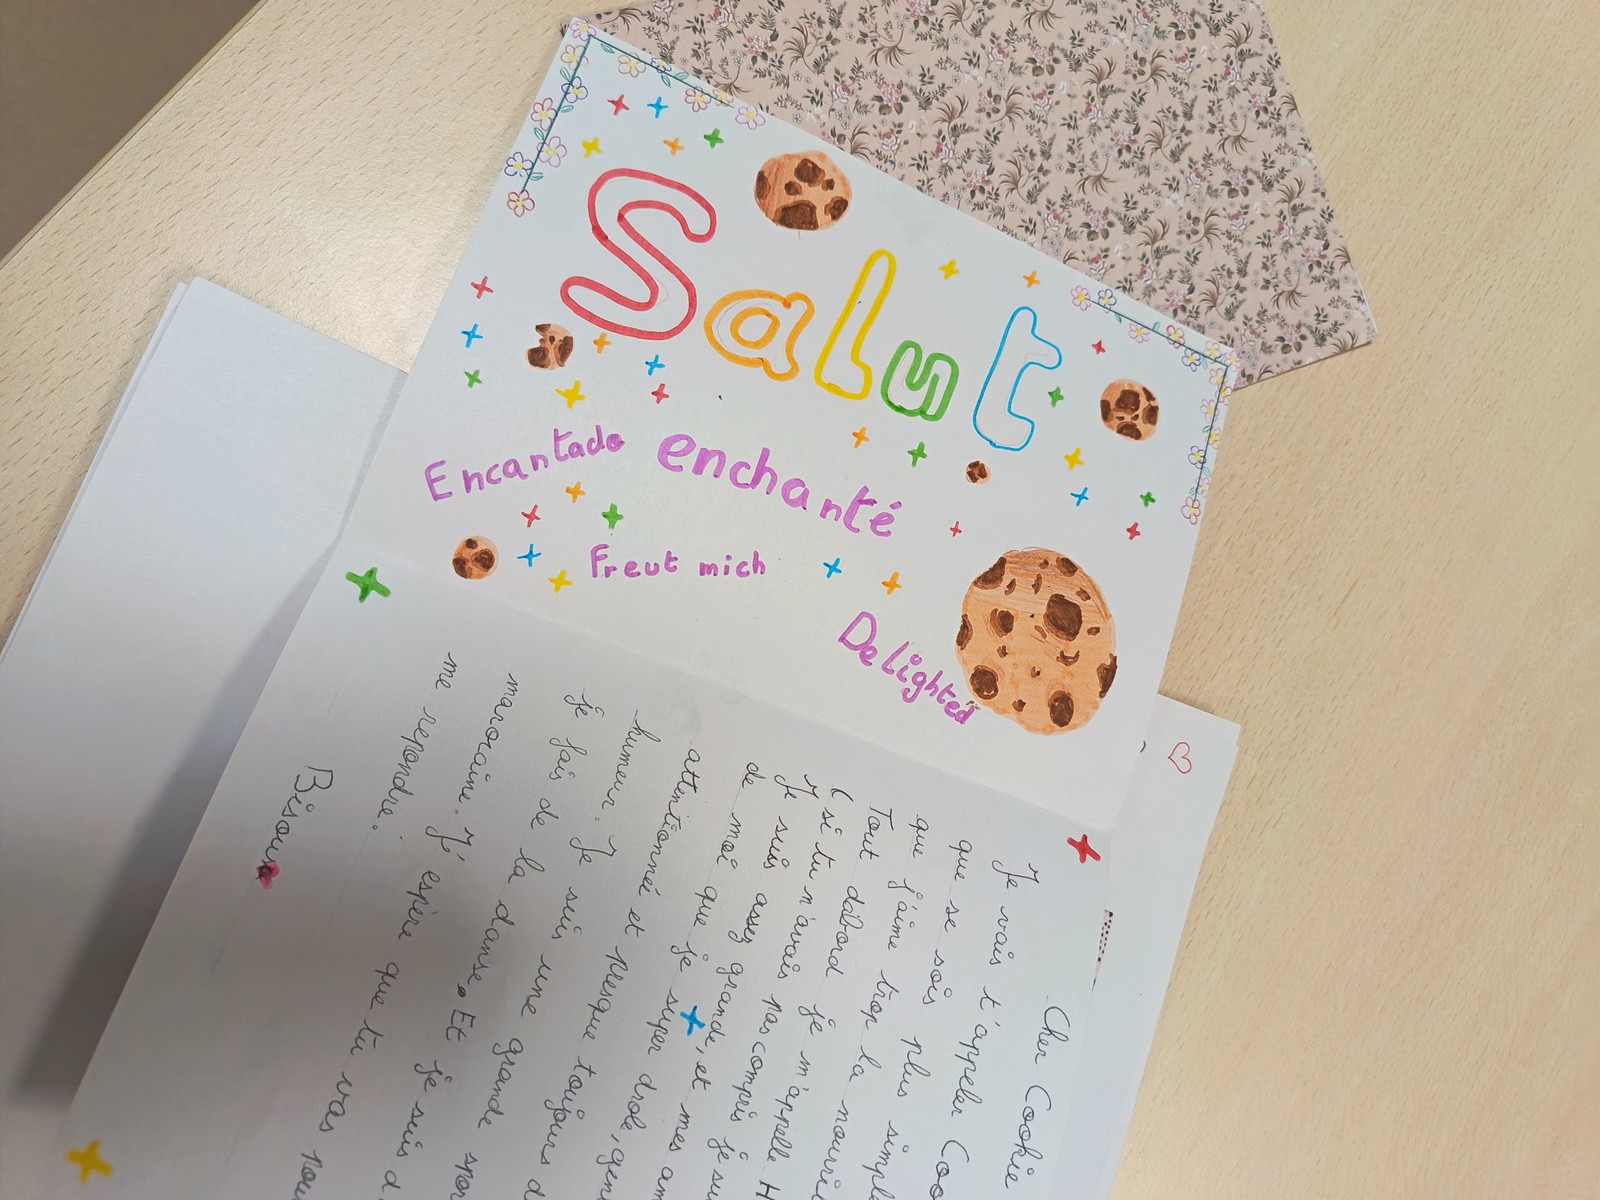 Salut
Encantado
enchanté
Freut mich
Delighted
Cher Cookie
Je vais t'appeler Coo
que se sois plus simple
que j'aime trop la nourri
Tout dábord je m'appelle H
(si tu n'avais pas compris je su
Je suis assez grande, et mes am
de moi que je super drole, gen
attentionneé et presque toujours d
humeur. Je suis une grande spor
je fais de la danse. Et je suis d
marocaine. J'espère que tu vas pou
me repondre.
Bisoux